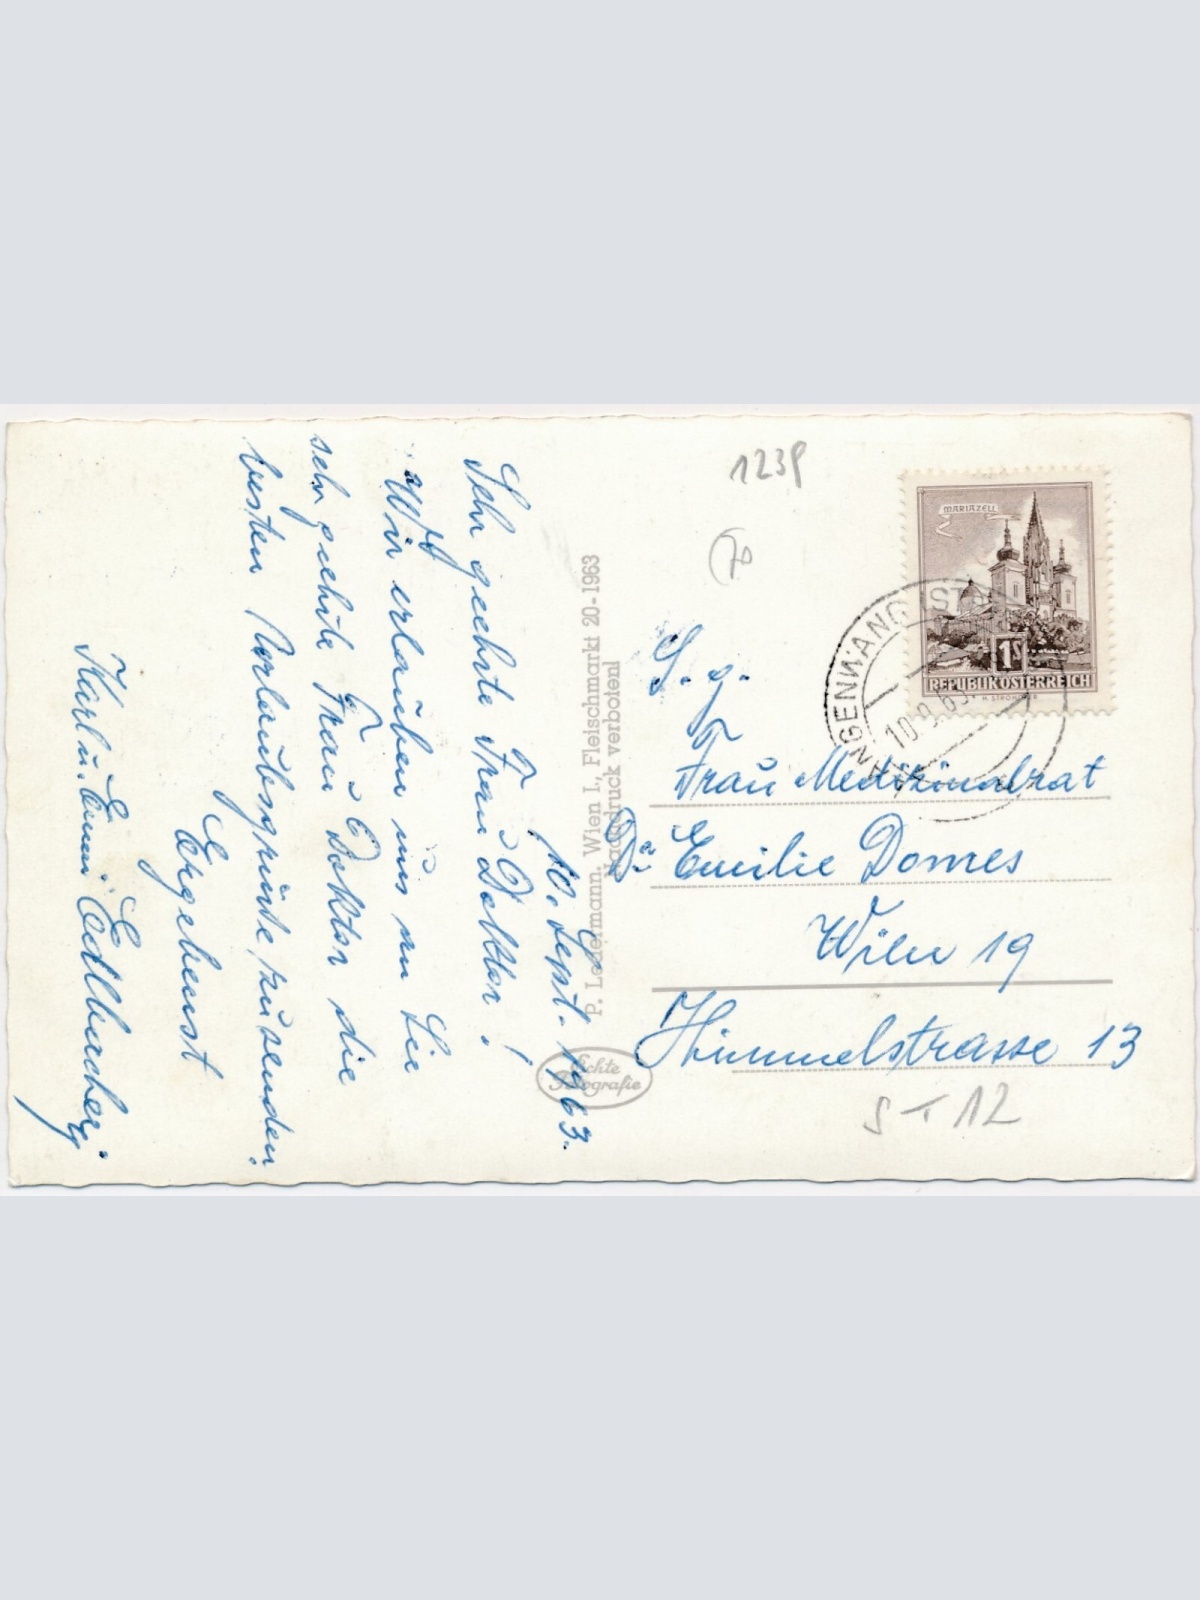 10. Sept. 1963.
Sehr geehrte Frau Doktor!
Wir erlauben uns nu Sie
sehr geehrte Frau Doktor die
besten Urlaubsgrüße zu senden.
Ergebenst
Karl u. Emmi Edlbacher
P. Ledermann, Wien I., Fleischmarkt 20-1963
Nachdruck verboten!
Echte
Fotografie
1239
MARIAZELL
1S
REPUBLIK ÖSTERREICH
LANGENWANG
10.9.63
S. g.
Frau Medizinalrat
Dr. Emilie Domes
Wien 19
Himmelstrasse 13
ST 12